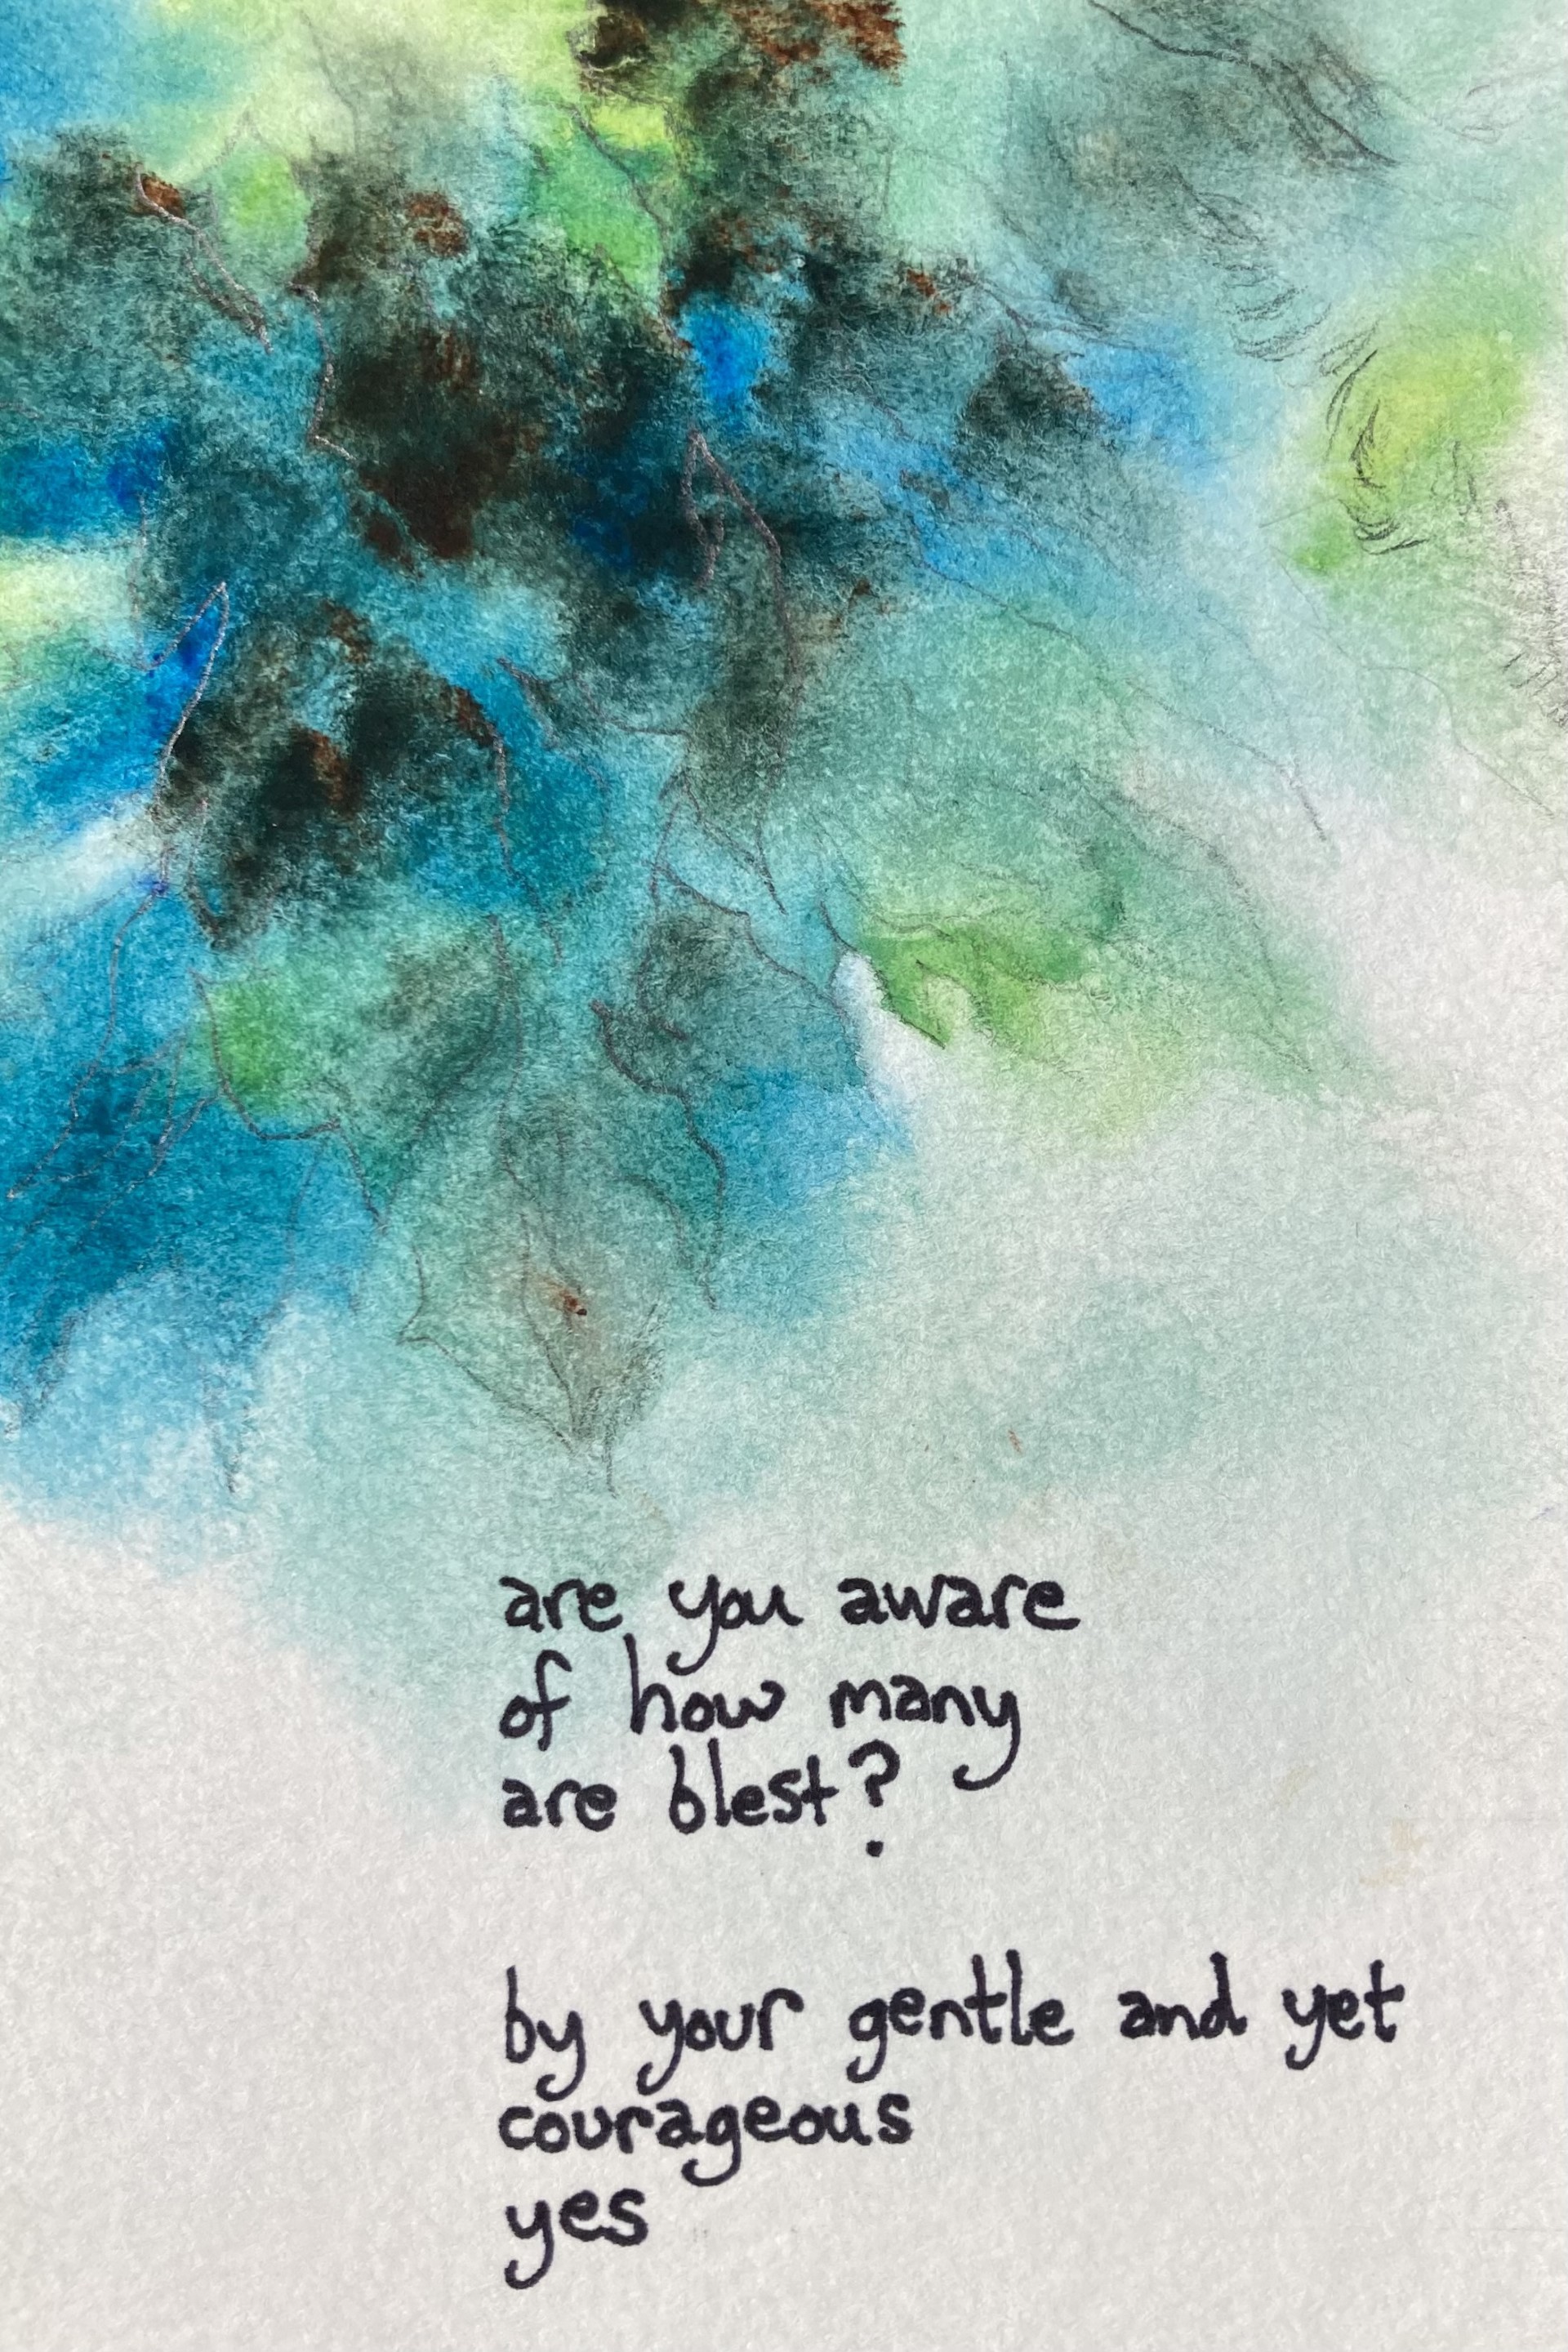 are you aware
of how many
are blest?
by your gentle and yet
courageous
yes